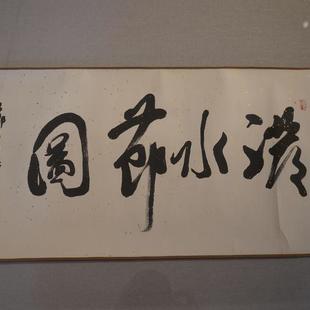 潑水節圖